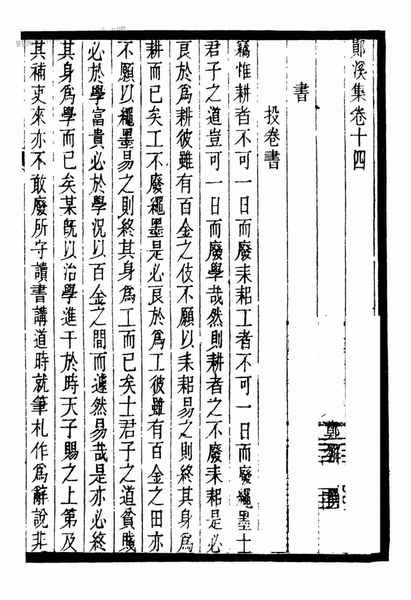 鄖溪集卷十四
鄭獬
書
投卷書
竊惟耕者不可一日而廢耒耜工者不可一日而廢繩墨士
君子之道豈可一日而廢學哉然則耕者之不廢耒耜是必
良於為耕彼雖有百金之伎不願以耒耜易之則終其身為
耕而已矣工不廢繩墨是必良於為工彼雖有百金之田亦
不願以繩墨易之則終其身為工而已矣士君子之道貧賤
必於學富貴必於學況以百金之間而遽然易哉是亦必終
其身為學而已矣某既以治學進干於時天子賜之上第及
其補吏來亦不敢廢所守讀書講道時就筆札作為辭說非